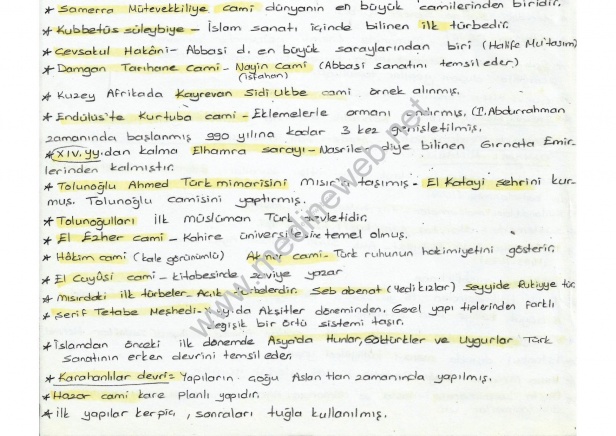 * Samerra Mütevekkiliye cami dünyanın en büyük camilerinden biridir.
* Kubbetüs süleybiye - İslam sanatı içinde bilinen ilk türbedir.
* Cevsakul Hakâni - Abbasi d. en büyük saraylarından biri (Halife Mu'tasım)
* Damgan Tarihane cami - Nayin Cami (Abbasi sanatını temsil eder)
(İsfahan)
* Kuzey Afrikada Kayrevan Sidi Ukbe cami örnek alınmış.
* Endülüs'te Kurtuba cami - Eklemelerle ormanı andırmış. (I. Abdurrahman
zamanında başlanmış 990 yılına kadar 3 kez genişletilmiş.
* XIV. yy. dan kalma Elhamra sarayı - Nasriler diye bilinen Gırnata Emir-
lerinden kalmıştır.
* Tolunoğlu Ahmed Türk mimarisini Mısır'a taşımış - El Katayi şehrini kur-
muş. Tolunoğlu camisini yaptırmış.
* Tolunoğulları ilk müslüman Türk devletidir.
* El Ezher cami - Kahire üniversitesine temel olmuş.
* Hâkim cami (kale görünümlü) Akmer cami - Türk ruhunun hakimiyetini gösterir.
* El Cuyûşi cami - kitabesinde seviye yazar
* Mısırdaki ilk türbeler - Açık türbelerdir. Seb abenat (yedi kızlar) seyyide Rukiyye tür
* Şerif Tabataba Meşhedi - yy. da Akşitler döneminden. Genel yapı tiplerinden farklı
değişik bir örtü sistemi taşır.
* İslamdan önceki ilk dönemde Asya'da Hunlar, Göktürkler ve Uygurlar Türk
sanatının erken devrini temsil eder.
* Karahanlılar devri = Yapıların çoğu Aslan Han zamanında yapılmış.
* Hazar cami kare planlı yapıdır.
* ilk yapılar kerpiç, sonraları tuğla kullanılmış.
www.medineweb.net